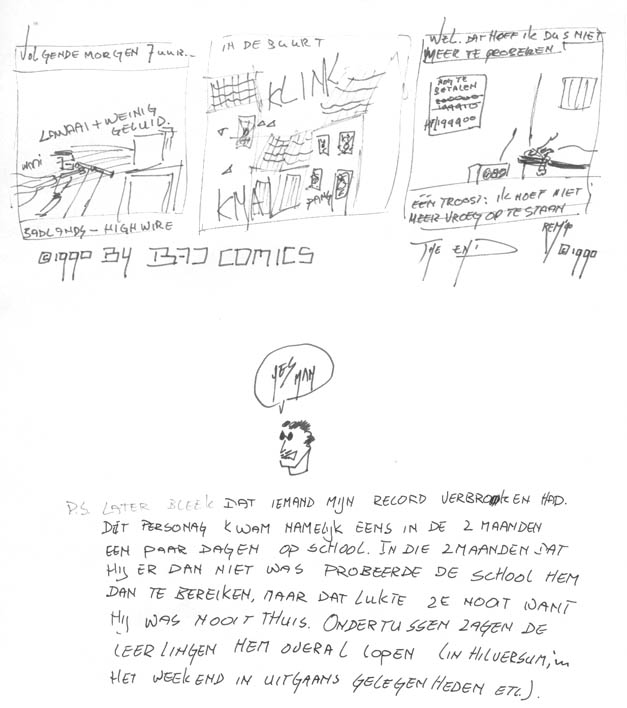 VOLGENDE MORGEN 7 UUR...
LAWAAI + WEINIG
GELUID.
BADLANDS - HIGHWIRE
IN DE BUURT
KLINK
KNAL
PANG
WEL. DAT HOEF IK DUS NIET
MEER TE PROBEREN!
NOG TE
BETALEN
ÉÉN TROOST: IK HOEF NIET
MEER VROEG OP TE STAAN
©1990 BY BAD COMICS
THE END
REM'90
©1990
YES
MAN
P.S. LATER BLEEK DAT IEMAND MIJN RECORD VERBROKEN HAD.
DIT PERSONAG KWAM NAMELIJK EENS IN DE 2 MAANDEN
EEN PAAR DAGEN OP SCHOOL. IN DIE 2 MAANDEN DAT
HIJ ER DAN NIET WAS PROBEERDE DE SCHOOL HEM
DAN TE BEREIKEN, MAAR DAT LUKTE ZE NOOIT WANT
HIJ WAS NOOIT THUIS. ONDERTUSSEN ZAGEN DE
LEERLINGEN HEM OVERAL LOPEN (IN HILVERSUM, in
HET WEEKEND IN UITGAANS GELEGENHEDEN ETC.).